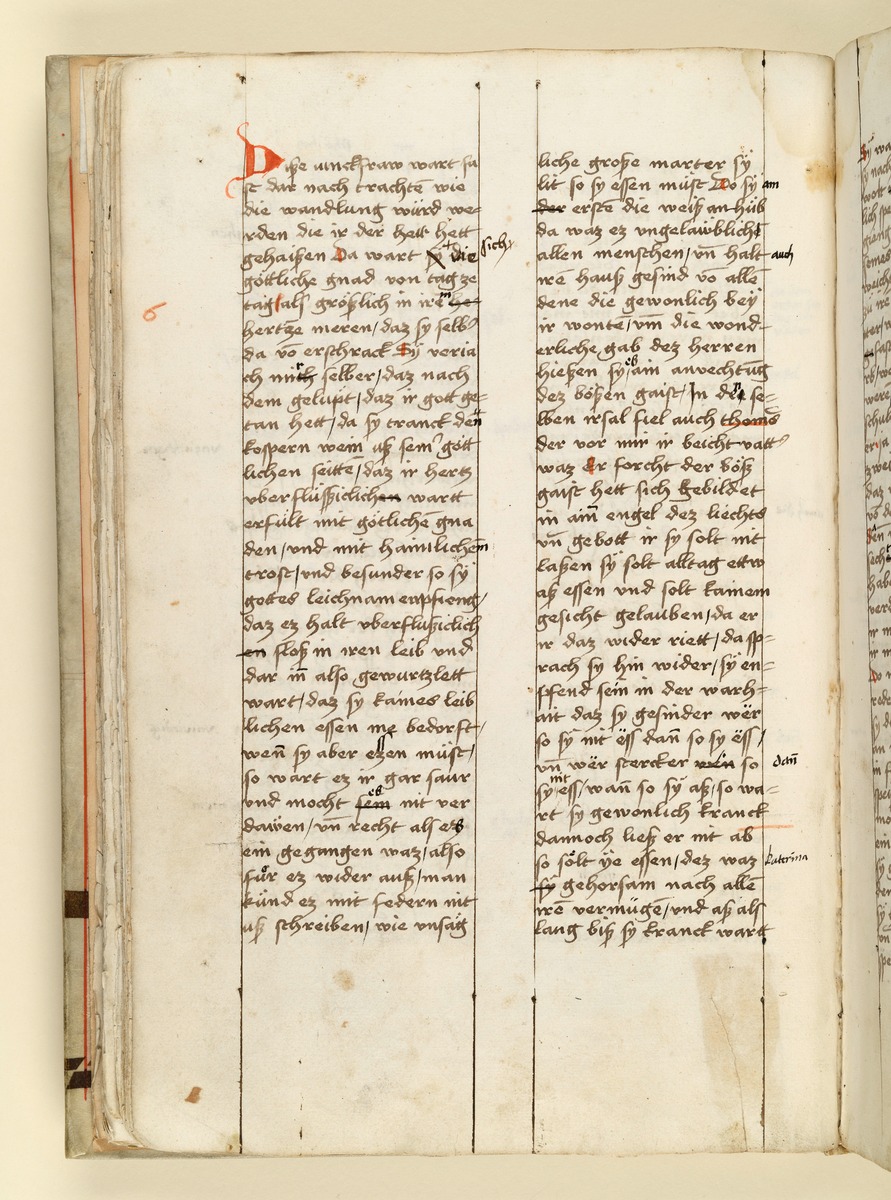 Diße iunckfraw wart fa
st dar nach trachtē wie
die wandlung würd we-
rden die ir der hett hett
gehaißen Da wart sÿ die sich
göttliche gnad von tag ze
tag als gröslich in irem
hertze meren / daz sy selb
da vō erschrack Sÿ veria
ch mir selber / daz nach
dem gelupt / daz ir gott ge-
tan hett / da sy tranck den
kospern wein uß sem̃ gött
lichen seittē / daz ir hertz
vberflüßiclichen wartt
erfült mit götlichē gna
den / vnd mit haimlichem
trost / vnd besunder so sÿ
gottes leichnam enpfieng /
daz ez halt vberflußiclich
en floß in iren leib vnd
dar in̄ also gewurtzlett
wart / daz sy kaines leib
lichen essen me bedorft /
weñ sy aber eßen müst /
so wart ez ir gar saur
vnd mocht sein eß nit ver
dawen / vñ recht als es
ein gegangen waz / also
fůr ez wider auß / man
künd ez mit federn nit
uß schreiben / wie vnsäg
liche große marter sÿ
lit so sy essen müst Do sÿ am
der erstē die weiß an hüb
da waz ez vngelawblich
allen menschen / vñ halt auch
irē hauß gesind vō allē
dene die gewonlich beÿ
ir wonte / vm̄ die wond-
erliche gab dez herren
hießen sÿ eß ain anvechtūg
dez bößen gaist / In der se-
lben irsal fiel auch thoms
der vor mir ir beicht vatt
waz Er forcht der böß
gaist hett sich gebildet
in ain̄ engel dez liechts
vñ gebott ir sy solt nit
laßen sÿ solt alltag ettw
aß essen vnd solt kainem
gesicht gelauben / da er
ir daz wider riett / da sp-
rach sy hin wider / sÿ en-
pfend sein in der warh-
ait daz sy gesinder wër
so sÿ nit ëss dañ so sy ëss /
vñ wër stercker wen so dañ
sy nit ess / wañ so sÿ aß / so wa-
rt sy gewonlich kranck
dannoch ließ er nit ab
so sölt ÿe essen / dez waz katrina
sÿ gehorsam nach allē
irē vermügē / vnd aß als
lang biß sÿ kranck wart
6